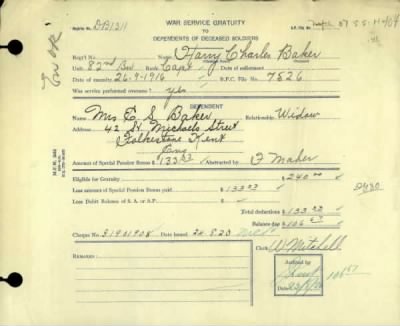 WAR SERVICE GRATUITY
TO
DEPENDENTS OF DECEASED SOLDIERS
Register No. DB1311
Regt'l No. Name Harry Charles Baker
Unit 82nd Bn Rank Capt Date of enlistment
Date of casualty 26-9-1916 B.P.C. File No. 7526
Was service performed overseas? yes
DEPENDENT
Name Mrs E S Baker Relationship Widow
Address 42 St Michaels Street
Folkestone Kent
Eng
Amount of Special Pension Bonus $ 133.33 Abstracted by F Maher
Eligible for Gratuity $ 240.00
Less amount of Special Pension Bonus paid $ 133.33
Less Debit Balance of S. A. or A.P. $
Total deductions $ 133.33
Balance due $ 106.67
Cheque No. 31901908 Date issued
Clerk W Mitchell
REMARKS:
Audited by